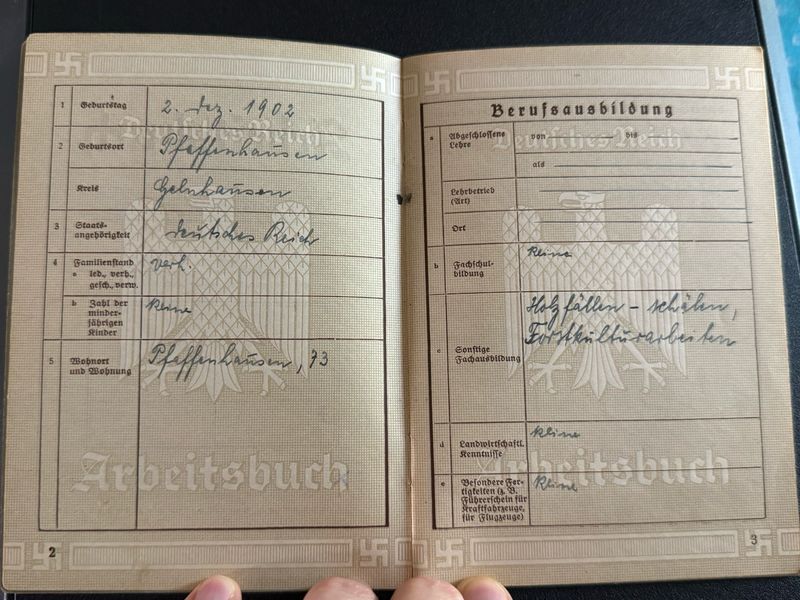 1 Geburtstag 2. Dez. 1902
2 Geburtsort Pfaffenhausen
Kreis Gelnhausen
3 Staats-
angehörigkeit deutsches Reich
4 Familienstand verh.
a led., verh.,
gesch., verw.
b Zahl der keine
minder-
jährigen
Kinder
5 Wohnort Pfaffenhausen, 73
und Wohnung
Deutsches Reich
Arbeitsbuch
2
Berufsausbildung
a Abgeschlossene von bis
Lehre
als
Lehrbetrieb
(Art)
Ort
b Fachschul- keine
bildung
Holzfällen - schälen,
Forstkulturarbeiten
c Sonstige
Fachausbildung
d Landwirtschaftl. keine
Kenntnisse
e Besondere Fer- keine
tigkeiten (z. B.
Führerschein für
Kraftfahrzeuge,
für Flugzeuge)
Deutsches Reich
Arbeitsbuch
3